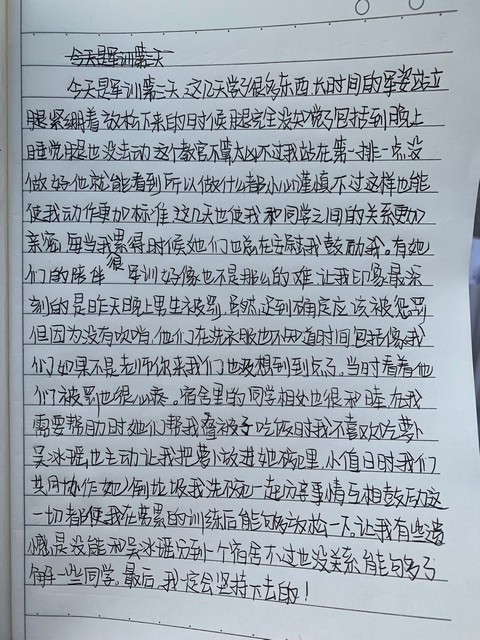 今天是军训第三天
今天是军训第三天,这几天学了很多东西,长时间的军姿站立
腿紧绷着放松下来的时候腿完全没知觉了包括到晚上
睡觉腿也没去动这个教官不算太凶不过我站在第一排一点没
做好他就能看到所以做什么都小心谨慎不过这样也能
使我动作更加标准这几天也使我和同学之间的关系更加
亲密,每当我累得时候她们也总在安慰我鼓励我。有她
们的陪伴很军训好像也不是那么的难让我印象最深
刻的是昨天晚上男生被罚,虽然迟到确度应该被惩罚
但因为没有吹哨,他们在洗衣服也不知道时间包括像我
们如果不是老师你来我们也没想到到点了。当时看着他
们被罚也很心疼。宿舍里的同学相处也很和睦,在我
需要帮助时她们帮我叠被子吃饭时我不喜欢吃萝卜
吴冰瑶也主动让我把萝卜放进她碗里,小值日时我们
共同协作她倒垃圾我洗碗一起分享事情互相鼓励这
一切都使我在劳累的训练后能够放松一下,让我有些遗
憾是没能和吴冰瑶分到一个宿舍不过也没关系能多多了
解一些同学。最后,我一定会坚持下去的!